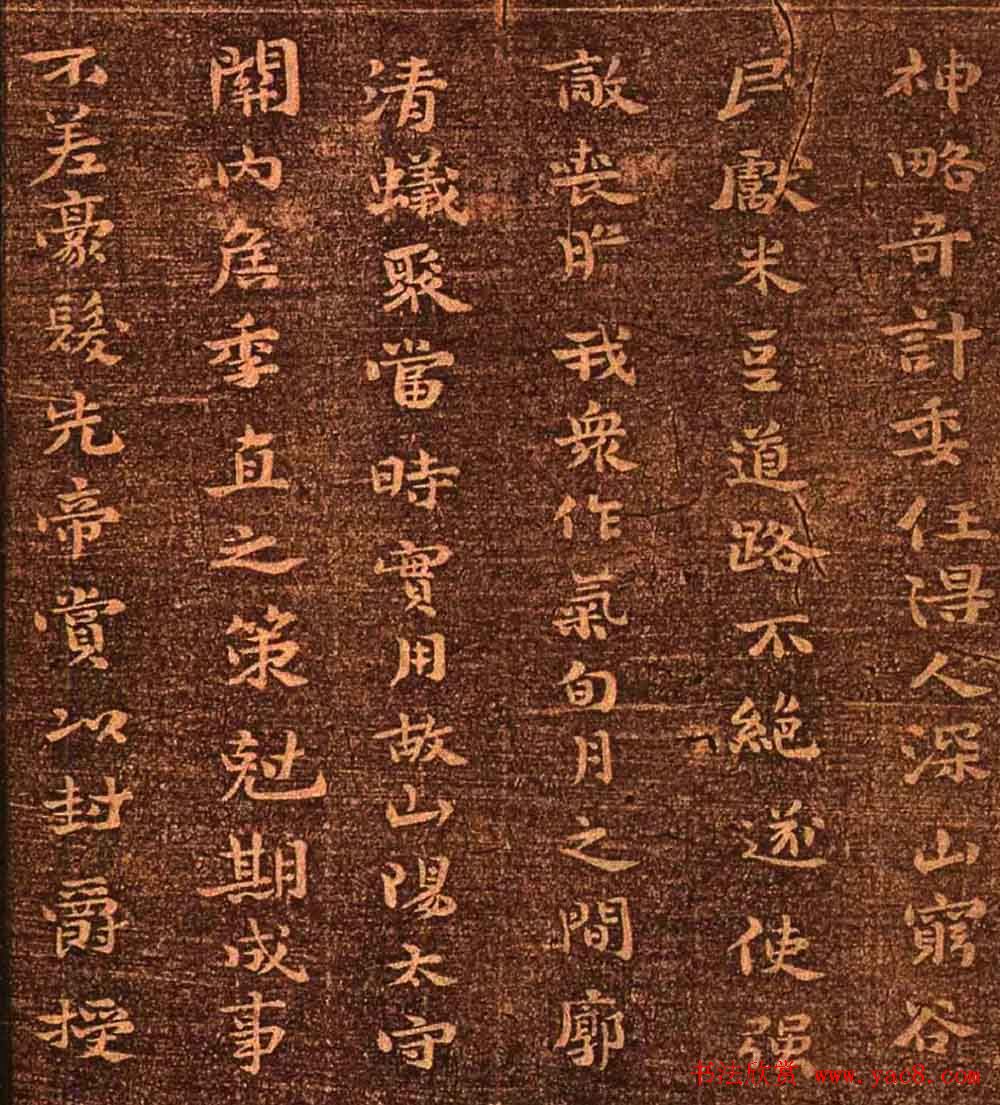 神略奇計委任得人深山窮谷
民獻米豆道路不絕遂使强
敵喪膽我衆作氣旬月之間廓
清蟻聚當時實用故山陽太守
關內侯季直之策剋期成事
不差豪髮先帝賞以封爵授
书法欣赏 www.yac8.com